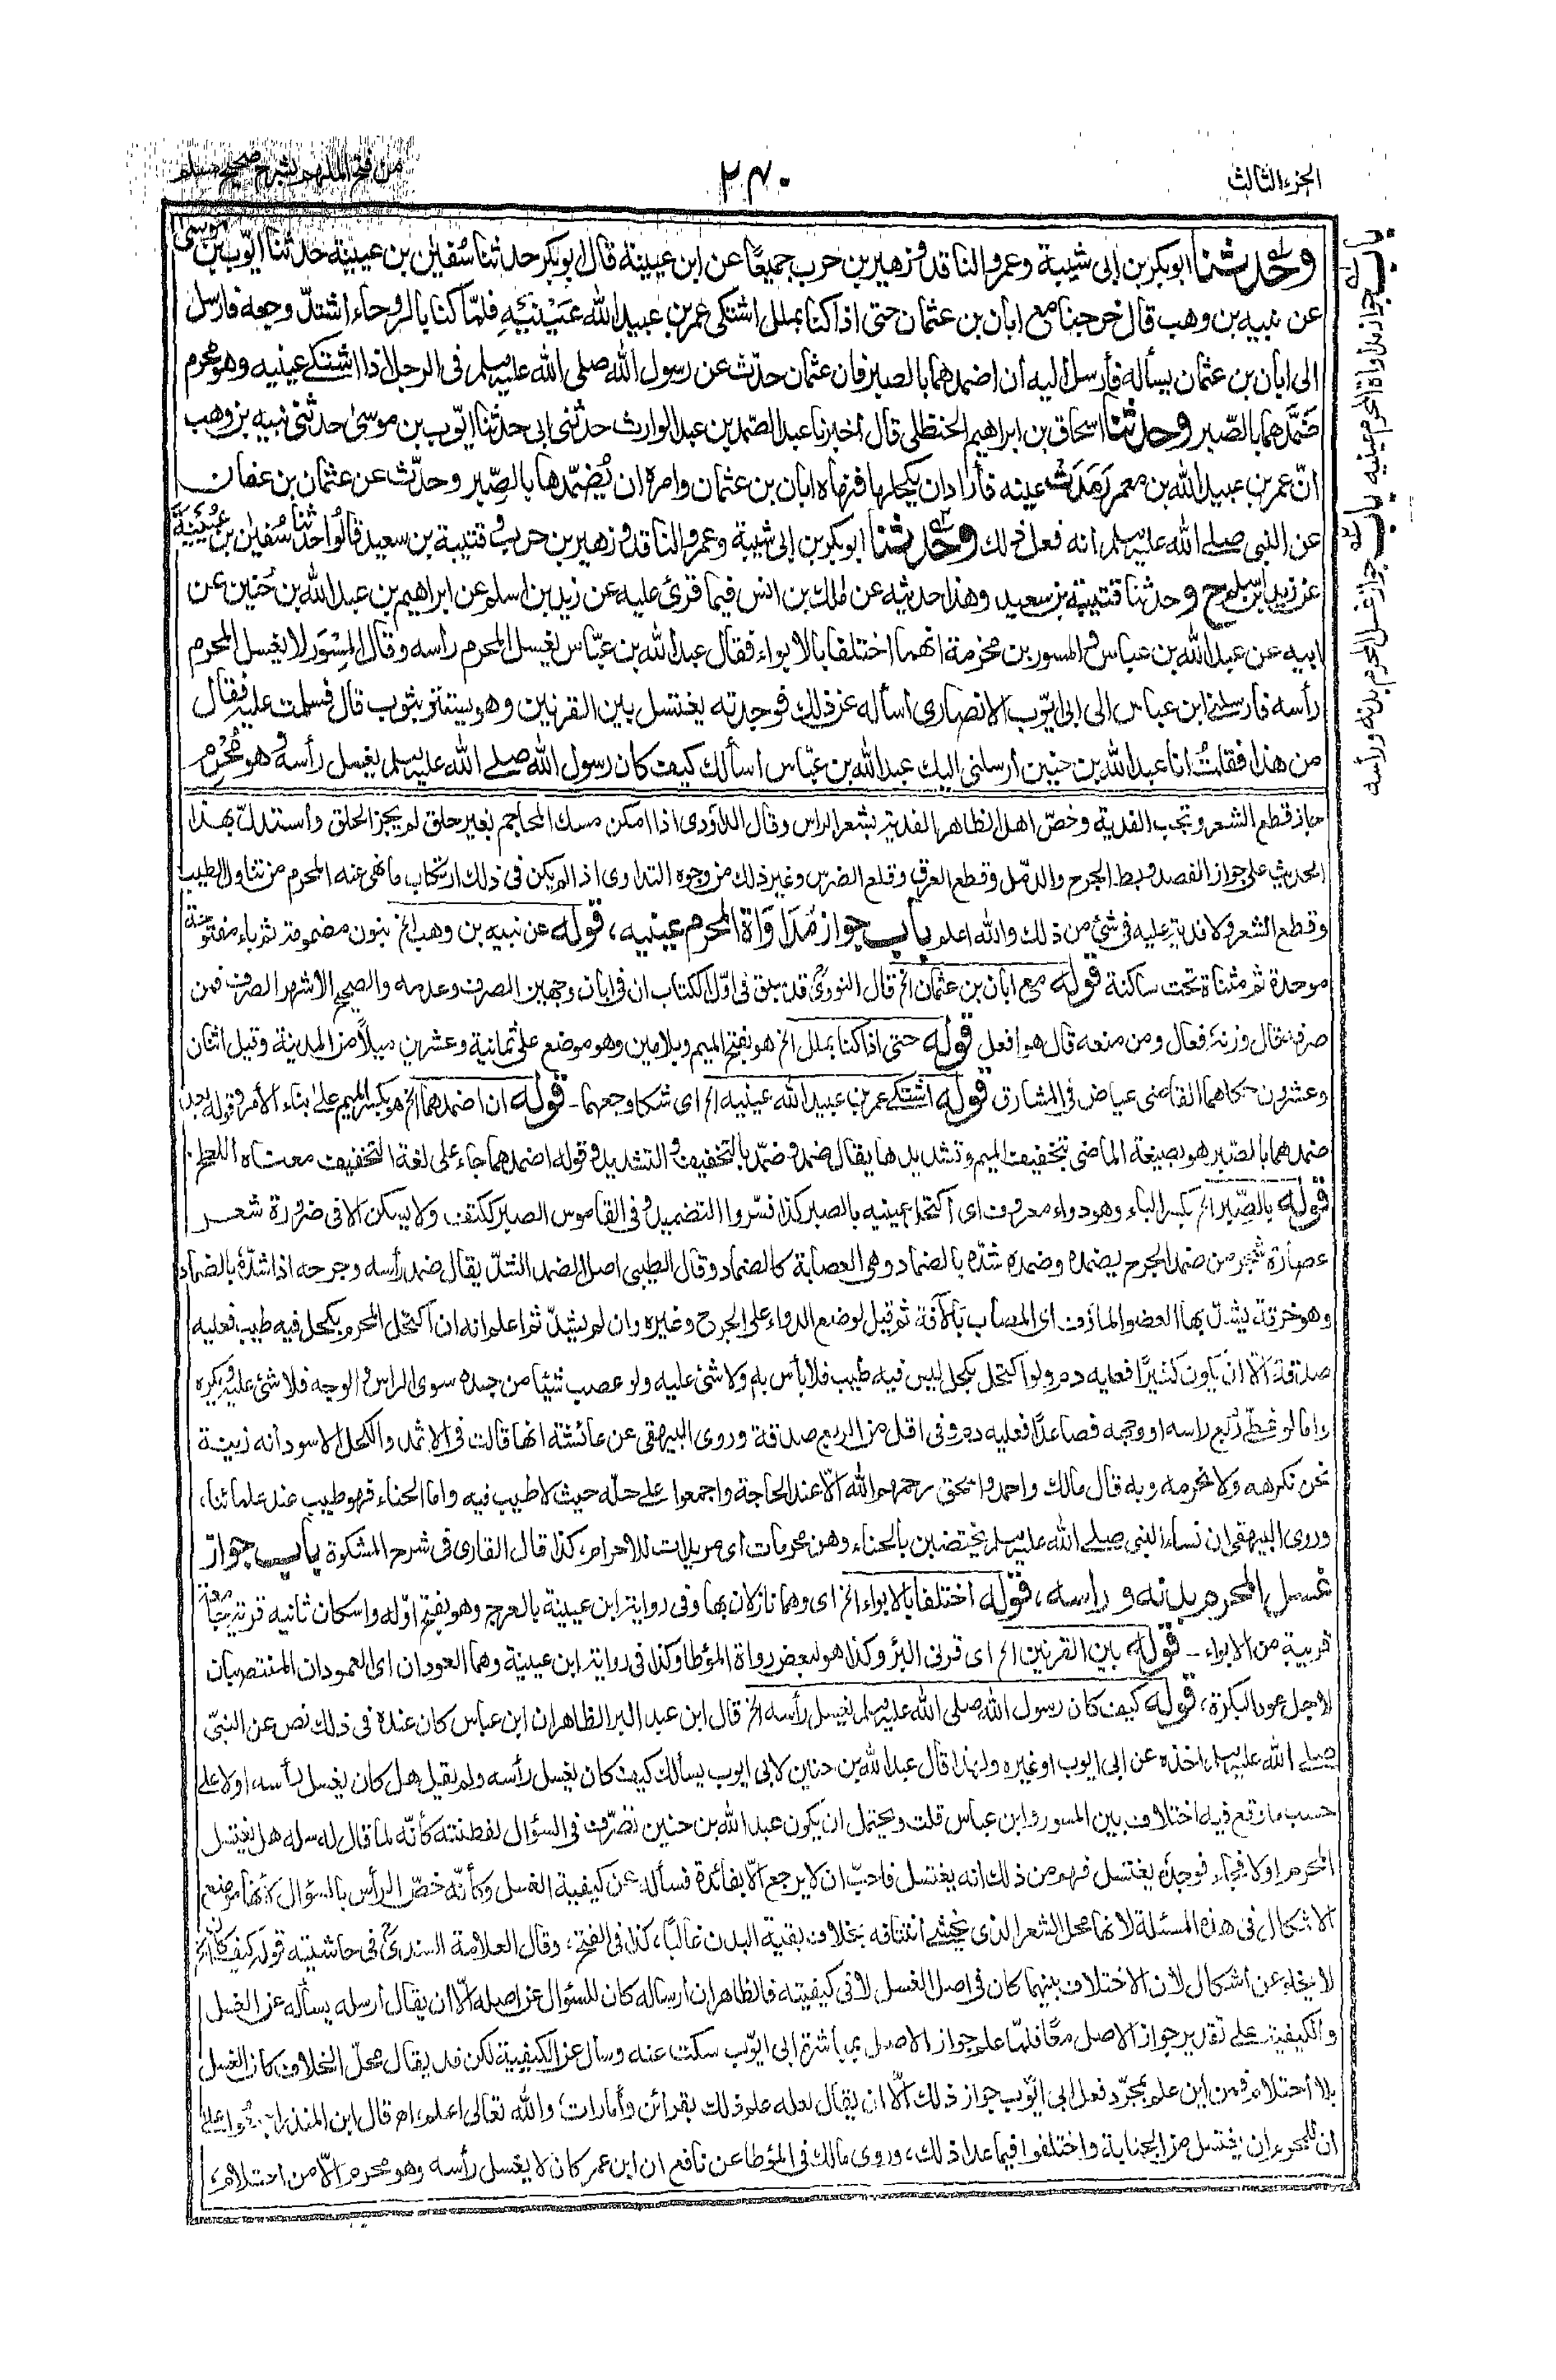 الجزء الثالث
٢٤٠
من فتح الملهم بشرح صحيح مسلم
وحدثنا ابوبكر بن ابى شيبة وعمرو الناقد وزهير بن حرب جميعًا عن ابن عيينة قال ابوبكر حدثنا سُفيٰن بن عيينة حدثنا ايّوب بن موسىٰ
عن نبيه بن وهب قال خرجنا مع ابان بن عثمان حتى اذا كنا بملل اشتكى عمر بن عبيد الله عَيْنَيْهِ فلمّا كنا بالروحاء اشتدّ وجعه فارسل
الى ابان بن عثمان يسأله فأرسل اليه أن اضمدهما بالصبر فان عثمان حدّث عن رسول الله صلى الله عليه وسلم فى الرجل اذا اشتكى عينيه وهو محرم
ضَمَّدهما بالصّبر وحدثنا اسحاق بن ابراهيم الحنظلى قال أخبرنا عبد الصّمد بن عبد الوارث حدثنى ابى حدثنا ايّوب بن موسىٰ حدثنى نبيه بن وهب
انّ عمر بن عبيد الله بن معمر رَمَدَتْ عينه فأراد ان يكحلها فنهاه ابان بن عثمان وامره ان يُضمّدها بالصّبر وحدّث عن عثمان بن عفان
عن النبى صلى الله عليه وسلم انه فعل ذلك وحدثنا ابوبكر بن ابى شيبة وعمرو الناقد وزهير بن حرب وقتيبة بن سعيد قالوا حدثنا سُفيٰن بن عُيَيْنَةَ
عن زيد ابن اسلم ح وحدثنا قتيبة بن سعيد وهذا حديثه عن مٰلك بن انس فيما قرئ عليه عن زيد بن اسلم عن ابراهيم بن عبد الله بن حُنين عن
ابيه عن عبد الله بن عباس والمسور بن مخرمة انهما اختلفا بالابواء فقال عبد الله بن عبّاس يغسل المحرم رأسه وقال المِسْوَر لا يغسل المحرم
رأسه فأرسلنى ابن عباس الى ابى ايّوب الانصارى أسأله عن ذلك فوجدته يغتسل بين القرنين وهو يستتر بثوب قال فسلمت عليه فقال
من هذا فقلتُ انا عبد الله بن حنين أرسلنى اليك عبد الله بن عبّاس أسألك كيف كان رسول الله صلى الله عليه وسلم يغسل رأسه وهو مُحْرِم
جاز قطع الشعر وتجب الفدية وخصّ اهل الظاهر الفدية بشعر الراس وقال الداودى اذا امكن مسك المحاجم بغير حلق لم يجز الحلق وأستدلّ بهذا
الحديث على جواز الفصد وبط الجرح والدمّل وقطع العرق وقلع الضرس وغير ذلك من وجوه التداوى اذا لم يكن فى ذلك ارتكاب ما نهى عنه المحرم من تناول الطيب
وقطع الشعر ولا فدية عليه فى شئ من ذلك والله اعلم باب جواز مُدَاوَاة المحرم عينيه، قوله عن نبيه بن وهب الخ بنون مضمومة ثم باء مفتوحة
موحدة ثم مثناة تحت ساكنة قوله مع ابان بن عثمان الخ قال النووىؒ قد سبق فى اوّل الكتاب ان فى ابان وجهين الصرف وعدمه والصحيح الاشهر الصرف فمن
صرفه قال وزنه فعال ومن منعه قال هو افعل قوله حتى اذا كنا بملل الخ هو بفتح الميم وبلامين وهو موضع على ثمانية وعشرين ميلاً من المدينة وقيل اثنان
وعشرون حكاهما القاضى عياض فى المشارق قوله اشتكى عمر بن عبيد الله عينيه الخ اى شكا وجعهما۔ قوله ان اضمدهما الخ هو بكسر الميم على بناء الأمر وقوله بعد
ضمدهما بالصّبر هو بصيغة الماضى بتخفيف الميم وتشديدها يقال ضمد وضمّد بالتخفيف والتشديد وقوله اضمدهما جاء على لغة التخفيف معناه اللطخ
قوله بالصّبر الخ بكسر الباء وهو دواء معروف اى أكتحل عينيه بالصبر كذا فسّروا التضميد وفى القاموس الصبر ككتف ولا يسكن الا فى ضرورة شعر
عصارة شجر من ضمد الجرح يضمده وضمده شدّه بالضماد وهى العصابة كالضماد وقال الطيبى اصل الضمد الشدّ يقال ضمد رأسه وجرحه اذا شدّه بالضماد
وهو خرقة يشدّ بها العضو الماؤف اى المصاب بالآفة ثم قيل لوضع الدواء على الجرح وغيره وان لم يشدّ ثم اعلم انه ان أكتحل المحرم بكحل فيه طيب فعليه
صدقة الّا ان يكون كثيرًا فعليه دم ولو اكتحل بكحل ليس فيه طيب فلا بأس به ولا شئ عليه ولو عصب شيئا من جسده سوى الراس والوجه فلا شئ عليه ويكره
واما لو غطّى رُبع راسه او وجهه فصاعدًا فعليه دم وفى اقل من الربع صدقة وروى البيهقى عن عائشة انها قالت فى الاثمد والكحل الاسود أنه زينة
نحن نكرهه ولا نحرمه وبه قال مالك واحمد واسحٰق رحمهم الله الّا عند الحاجة واجمعوا على حلّه حيث لا طيب فيه واما الحناء فهو طيب عند علمائنا،
وروى البيهقى ان نساء النبى صلى الله عليه وسلم يختضبن بالحناء وهن محرمات اى مريدات للاحرام، كذا قال القارى فى شرح المشكوة باب جواز
غسل المحرم بدنه وراسه، قوله اختلفا بالابواء الخ اى وهما نازلان بها وفى رواية ابن عيينة بالعرج وهو بفتح اوّله واسكان ثانيه قرية جامعة
قريبة من الابواء۔ قوله بين القرنين الخ اى قرنى البئر وكذا هو لبعض رواة المؤطا وكذا فى رواية ابن عيينة وهما العودان اى العمودان المنتصبان
لاجل عود البكرة، قوله كيف كان رسول الله صلى الله عليه وسلم يغسل رأسه الخ قال ابن عبد البر الظاهر ان ابن عباس كان عنده فى ذلك نص عن النبىّ
صلى الله عليه وسلم اخذه عن ابى ايوب او غيره ولهذا قال عبد الله بن حنين لابى ايوب يسألك كيف كان يغسل رأسه ولم يقل هل كان يغسل رأسه، اولا على
حسب ما وقع فيه اختلاف بين المسور وابن عباس قلت ويحتمل ان يكون عبد الله بن حنين تصرّف فى السؤال لفطنته كأنّه لما قال له سله هل يغتسل
المحرم اولا فجاء فوجده يغتسل فهم من ذلك انه يغتسل فاحبّ ان لا يرجع الّا بفائدة فسأله عن كيفية الغسل وكأنّه خصّ الرأس بالسؤال لانها موضع
الاشكال فى هذه المسئلة لانها محل الشعر الذى يخشى انتتافه بخلاف بقية البدن غالباً، كذا فى الفتح، وقال العلامة السندىؒ فى حاشيته قوله كيف كان الخ
لا يخلو عن أشكال لأن الاختلاف بينهما كان فى اصل الغسل لا فى كيفيته فالظاهر ان أرساله كان للسؤال عن اصله الّا ان يقال أرسله يسأله عن الغسل
والكيفية على تقدير جواز الاصل معًا فلمّا علم جواز الاصل بمباشرة ابى ايّوب سكت عنه وسأل عن الكيفية لكن قد يقال محلّ الخلاف كان الغسل
بلا أحتلام فمن اين علم بمجرّد فعل ابى ايّوب جواز ذلك الّا ان يقال لعله علم ذلك بقرائن وأمارات، والله تعالى اعلم، اه قال ابن المنذر اجمعوا على
ان للمحرم ان يغتسل من الجنابة واختلفوا فيما عدا ذلك، وروى مالك فى المؤطا عن نافع ان ابن عمر كان لا يغسل رأسه وهو محرم الّا من احتلام،
باب جواز مداواة المحرم عينيه
باب جواز غسل المحرم بدنه ورأسه